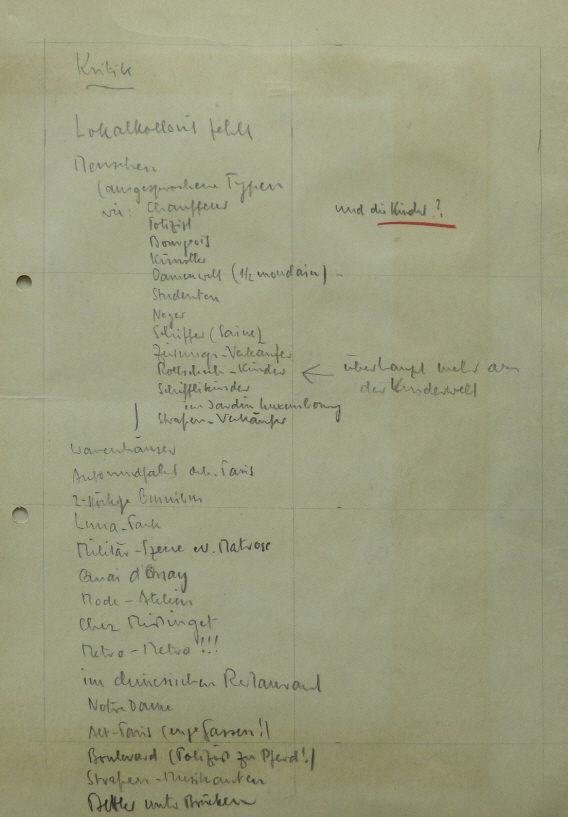 Kritik
Lokalkolorit fehlt
Menschen
(ausgesprochene Typen
wie: Chauffeur
und die Kinder?
Polizist
Bourgois
Künstler
Damenwelt (1/2 mondain) -
Studenten
Neger
Schiffer (Saine)
Zeitungs-Verkäufer
Rollschuh-Kinder ← überhaupt mehr aus
der Kinderwelt
Schifflikinder
im Jardin Luxembourg
Strassen-Verkäufer
Warenhäuser
Autorundfahrt Paris
2-stöckige Omnibus
Luna-Park
Militär-Szene Matrose
Quai d'Orsay
Mode-Ateliers
Chez Mistinget
Metro-Metro!!!
im chinesischen Restaurant
Notre Dame
Alt-Paris (enge Gassen!)
Boulevard (Polizist zu Pferd!)
Strassen-Musikanten
Bettler unter Brücken